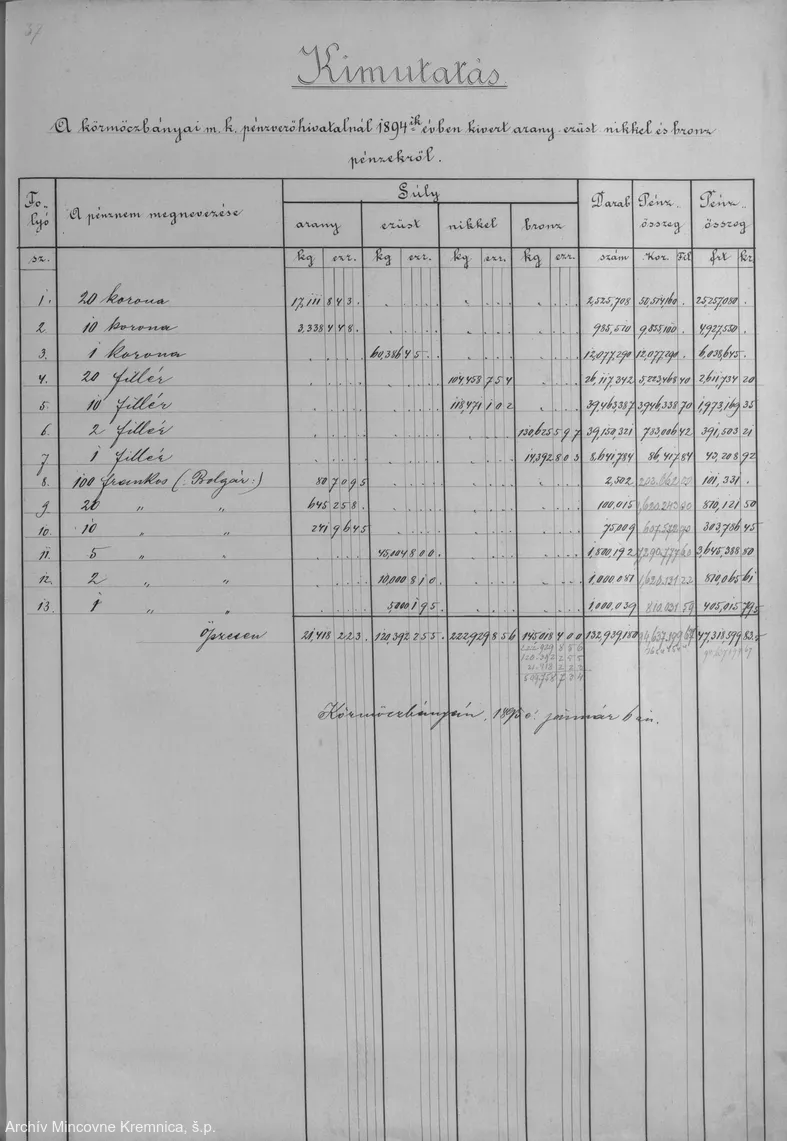 37
Kimutatás
A körmöczbányai m. k. pénzverőhivatalnál 1894ik évben kivert arany ezüst nikkel és bronz
pénzekről.
Folyó sz. A pénznem megnevezése Súly Darab szám Pénz összeg Pénz összeg
arany ezüst nikkel bronz
kg ezr. kg ezr. kg ezr. kg ezr. Kor. Fil frt kr
1. 20 korona 17,111 843. 2,525,708 50,514,160 . 25,257,080 .
2 10 korona 3,338 448. 985,510 9,855,100 . 4,927,550 .
3. 1 korona 60,386 45. 12,077,290 12,077,290 . 6,038,645 .
4. 20 fillér 104,458 754 26,117,342 5,223,468 40 2,611,734 20
5. 10 fillér 118,471 102 39,463,387 3,946,338 70 1,973,169 35
6 2 fillér 130,625 597 39,150,321 783,006 42 391,503 21
7 1 fillér 14,392 803 8,641,784 86,417 84 43,208 92
8. 100 frankos (: Bolgár :) 80 7095 2,502 101,331 .
9 20 „ „ 645 258. 100,015 810,121 50
10. 10 „ „ 241 9645 75,009 303,786 45
11. 5 „ „ 45,004 800. 1,800,192 3,645,388 80
12. 2 „ „ 10,000 810. 1,000,081 810,065 61
13. 1 „ „ 5,000 195. 1,000,039 405,015 795
Öszesen 21,418 223. 120,392 255. 222,929 856 145,018 400 132,939,180 47,318,599 83.5
222,929 856
120,392 255
21,418 223
509,758 734
Körmöczbányán, 1895 ő január 6 án.
Archív Mincovne Kremnica, š.p.